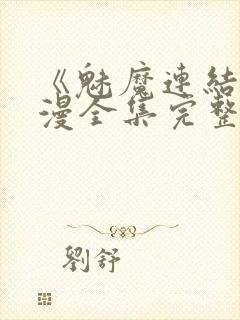 《魅魔連結
漫全集完整
劉舒